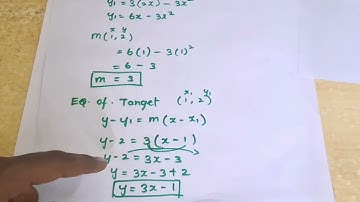 y₁ = 3(2x) - 3x²
y₁ = 6x - 3x²
x y
m(1, 2)
= 6(1) - 3(1)²
= 6 - 3
m = 3
EQ. of. Tanget (1, 2)
x₁ y₁
y - y₁ = m(x - x₁)
y - 2 = 3(x - 1)
y - 2 = 3x - 3
y = 3x - 3 + 2
y = 3x - 1